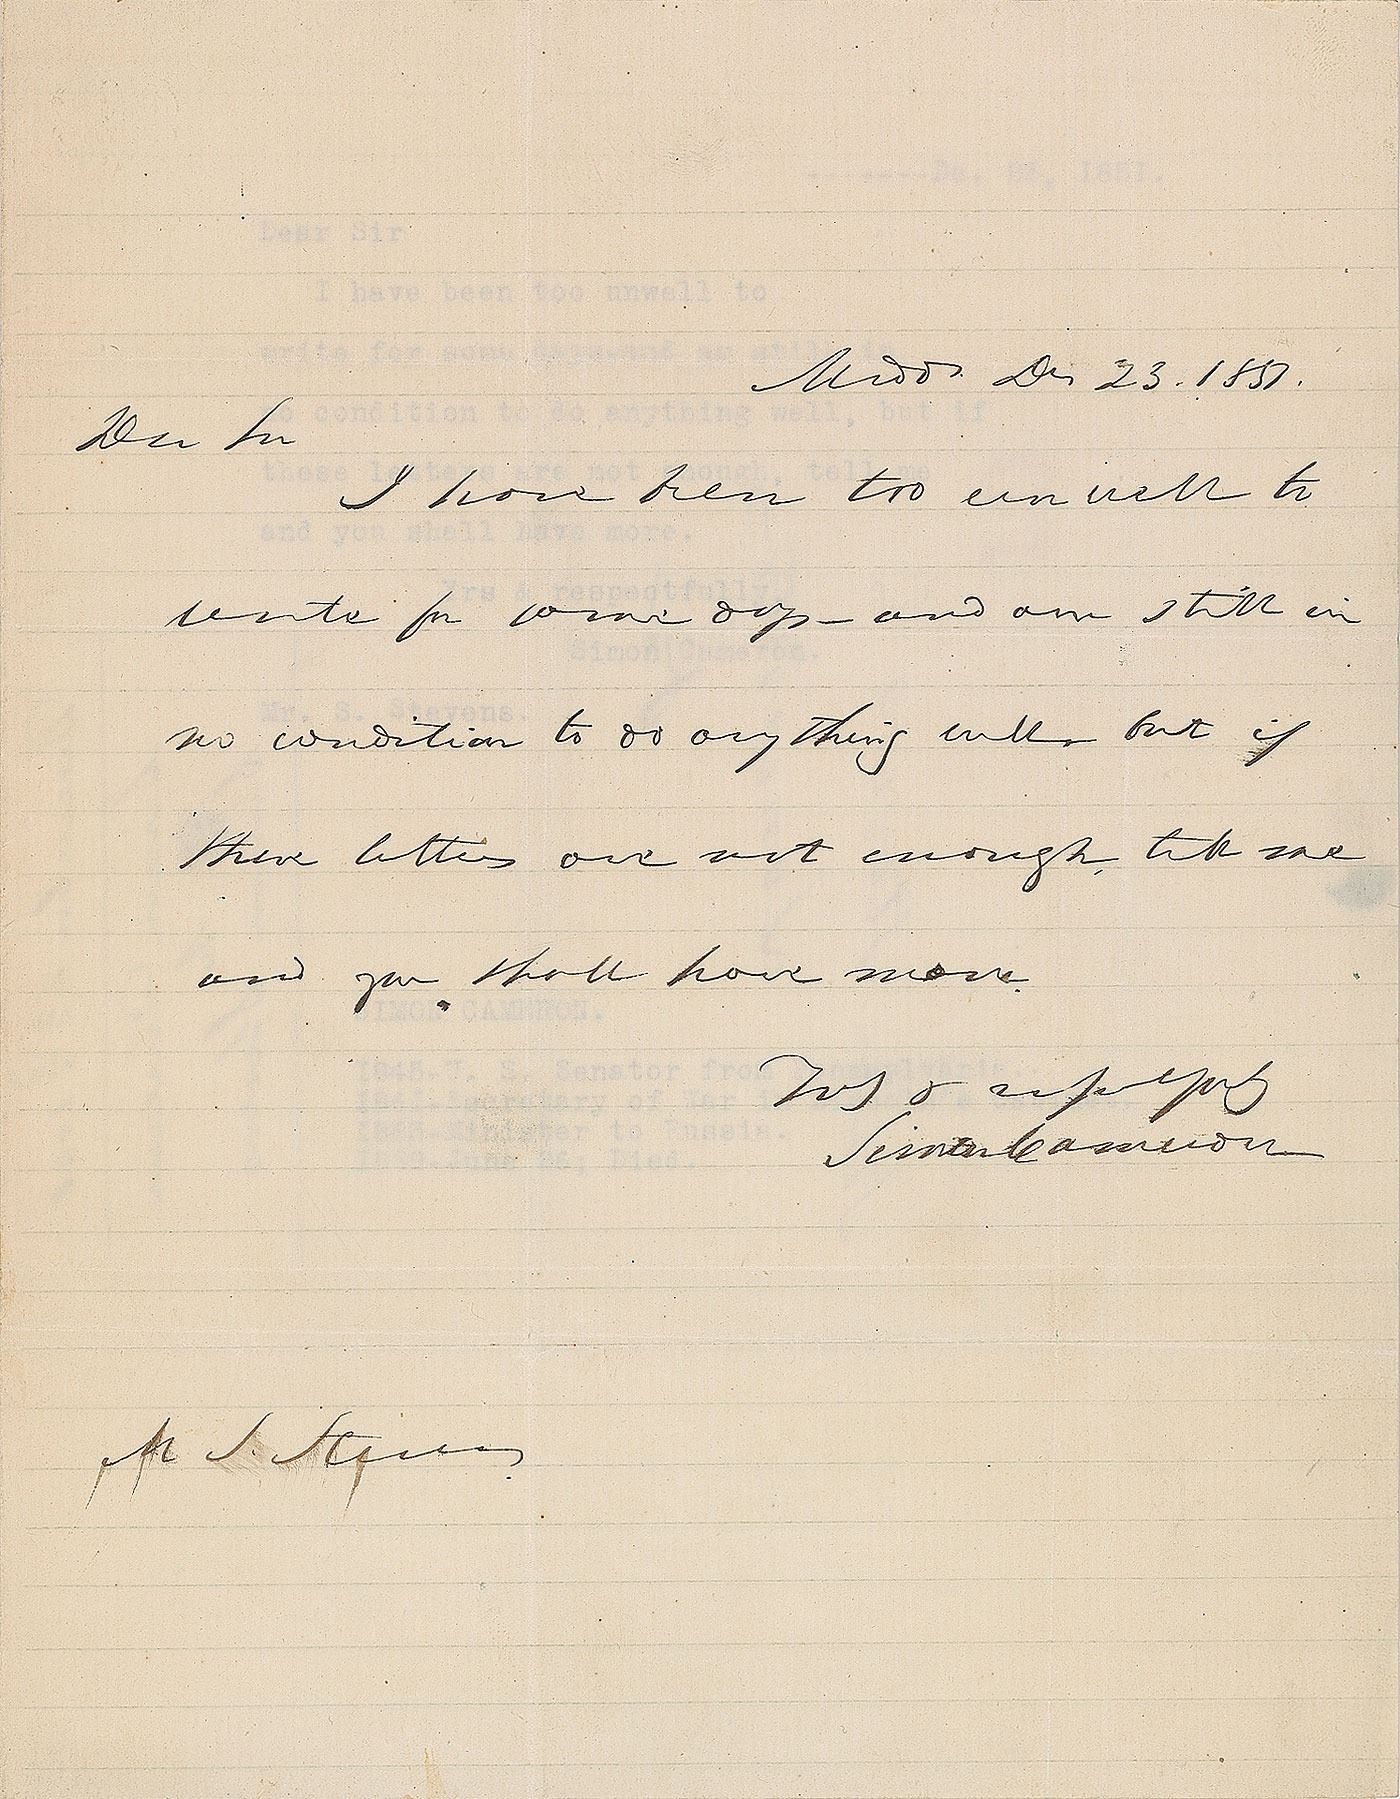 Dec 23. 1851.
Dear Sir
I have been too unwell to
write for some days – and am still in
no condition to do anything well, but if
these letters are not enough, tell me
and you shall have more.
Yrs & respectfully
Simon Cameron
Mr S. Stevens
Dear Sir
I have been too unwell to
write for some days and am still in
no condition to do anything well, but if
these letters are not enough, tell me
and you shall have more.
Yrs & respectfully,
Simon Cameron.
Mr. S. Stevens.
SIMON CAMERON.
1845-U. S. Senator from Pennsylvania.
Secretary of War
Minister to Russia.
June 26 Died.